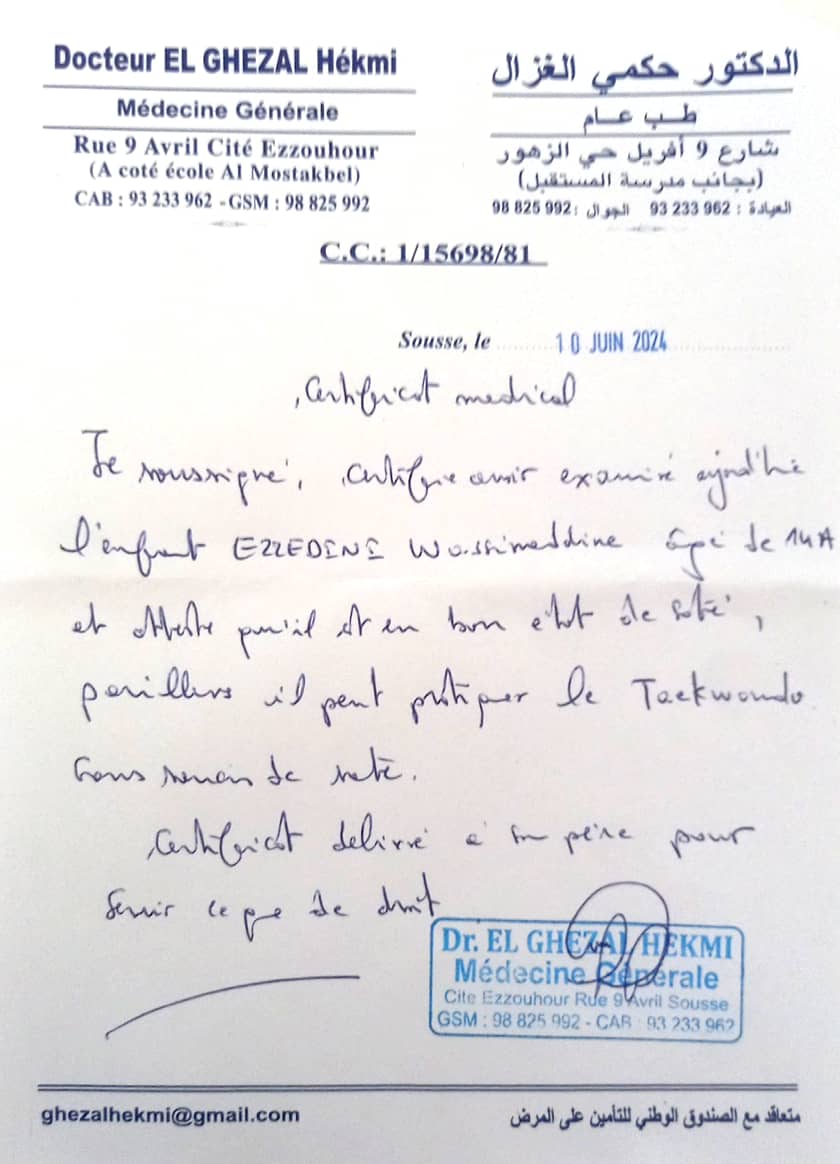 Docteur EL GHEZAL Hékmi
Médecine Générale
Rue 9 Avril Cité Ezzouhour
(A coté école Al Mostakbel)
CAB : 93 233 962 - GSM : 98 825 992
الدكتور حكمي الغزال
طب عام
شارع 9 أفريل حي الزهور
(بجانب مدرسة المستقبل)
العيادة : 962 233 93 الجوال : 992 825 98
C.C.: 1/15698/81
Sousse, le 10 JUIN 2024
Certificat medical
Je soussigné, certifie avoir examiné aujourd'hui
l'enfant EZZEDINI Wassimeddine âgé de 14A
et atteste qu'il est en bon etat de santé,
par ailleurs il peut pratiquer le Taekwondo
de
Certificat delivré à son père pour
servir ce que de droit
Dr. EL GHEZAL HEKMI
Médecine Génerale
Cite Ezzouhour Rue 9 Avril Sousse
GSM : 98 825 992 - CAB : 93 233 962
ghezalhekmi@gmail.com
متعاقد مع الصندوق الوطني للتأمين على المرض